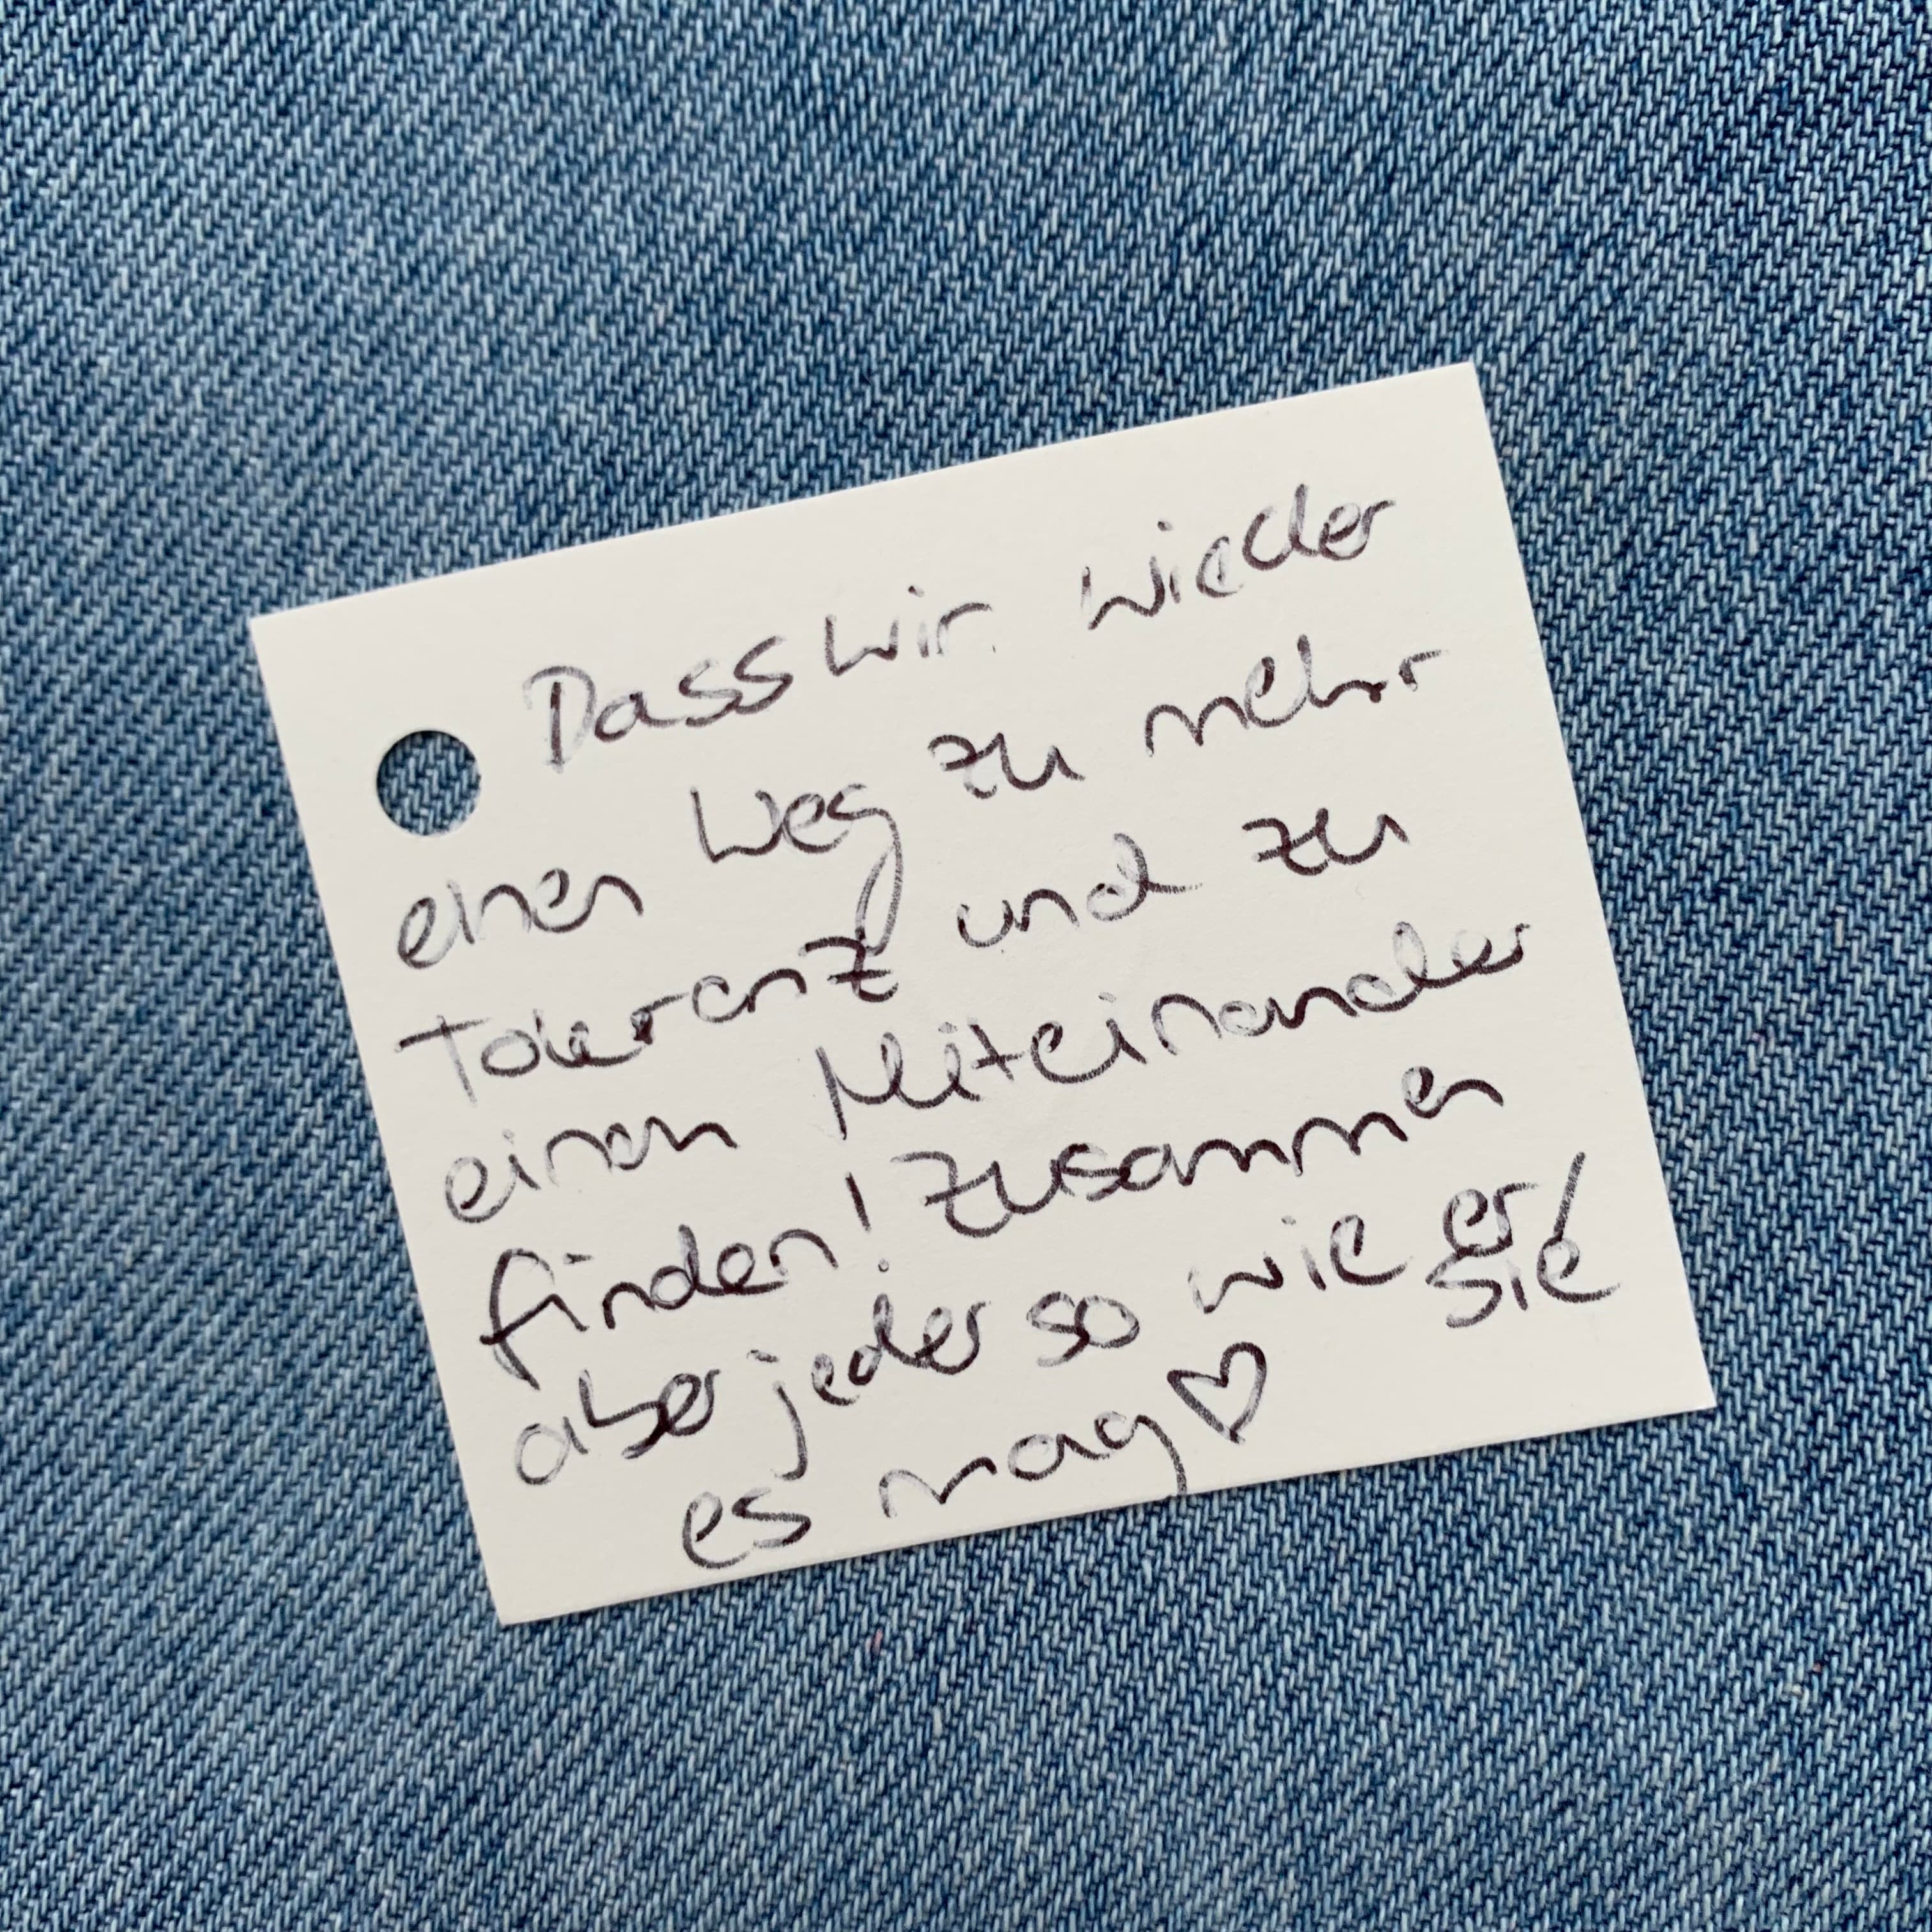 Dass wir wieder
einen Weg zu mehr
Toleranz und zu
einen Miteinander
finden! Zusammen
aber jeder so wie er/
sie
es mag ♡